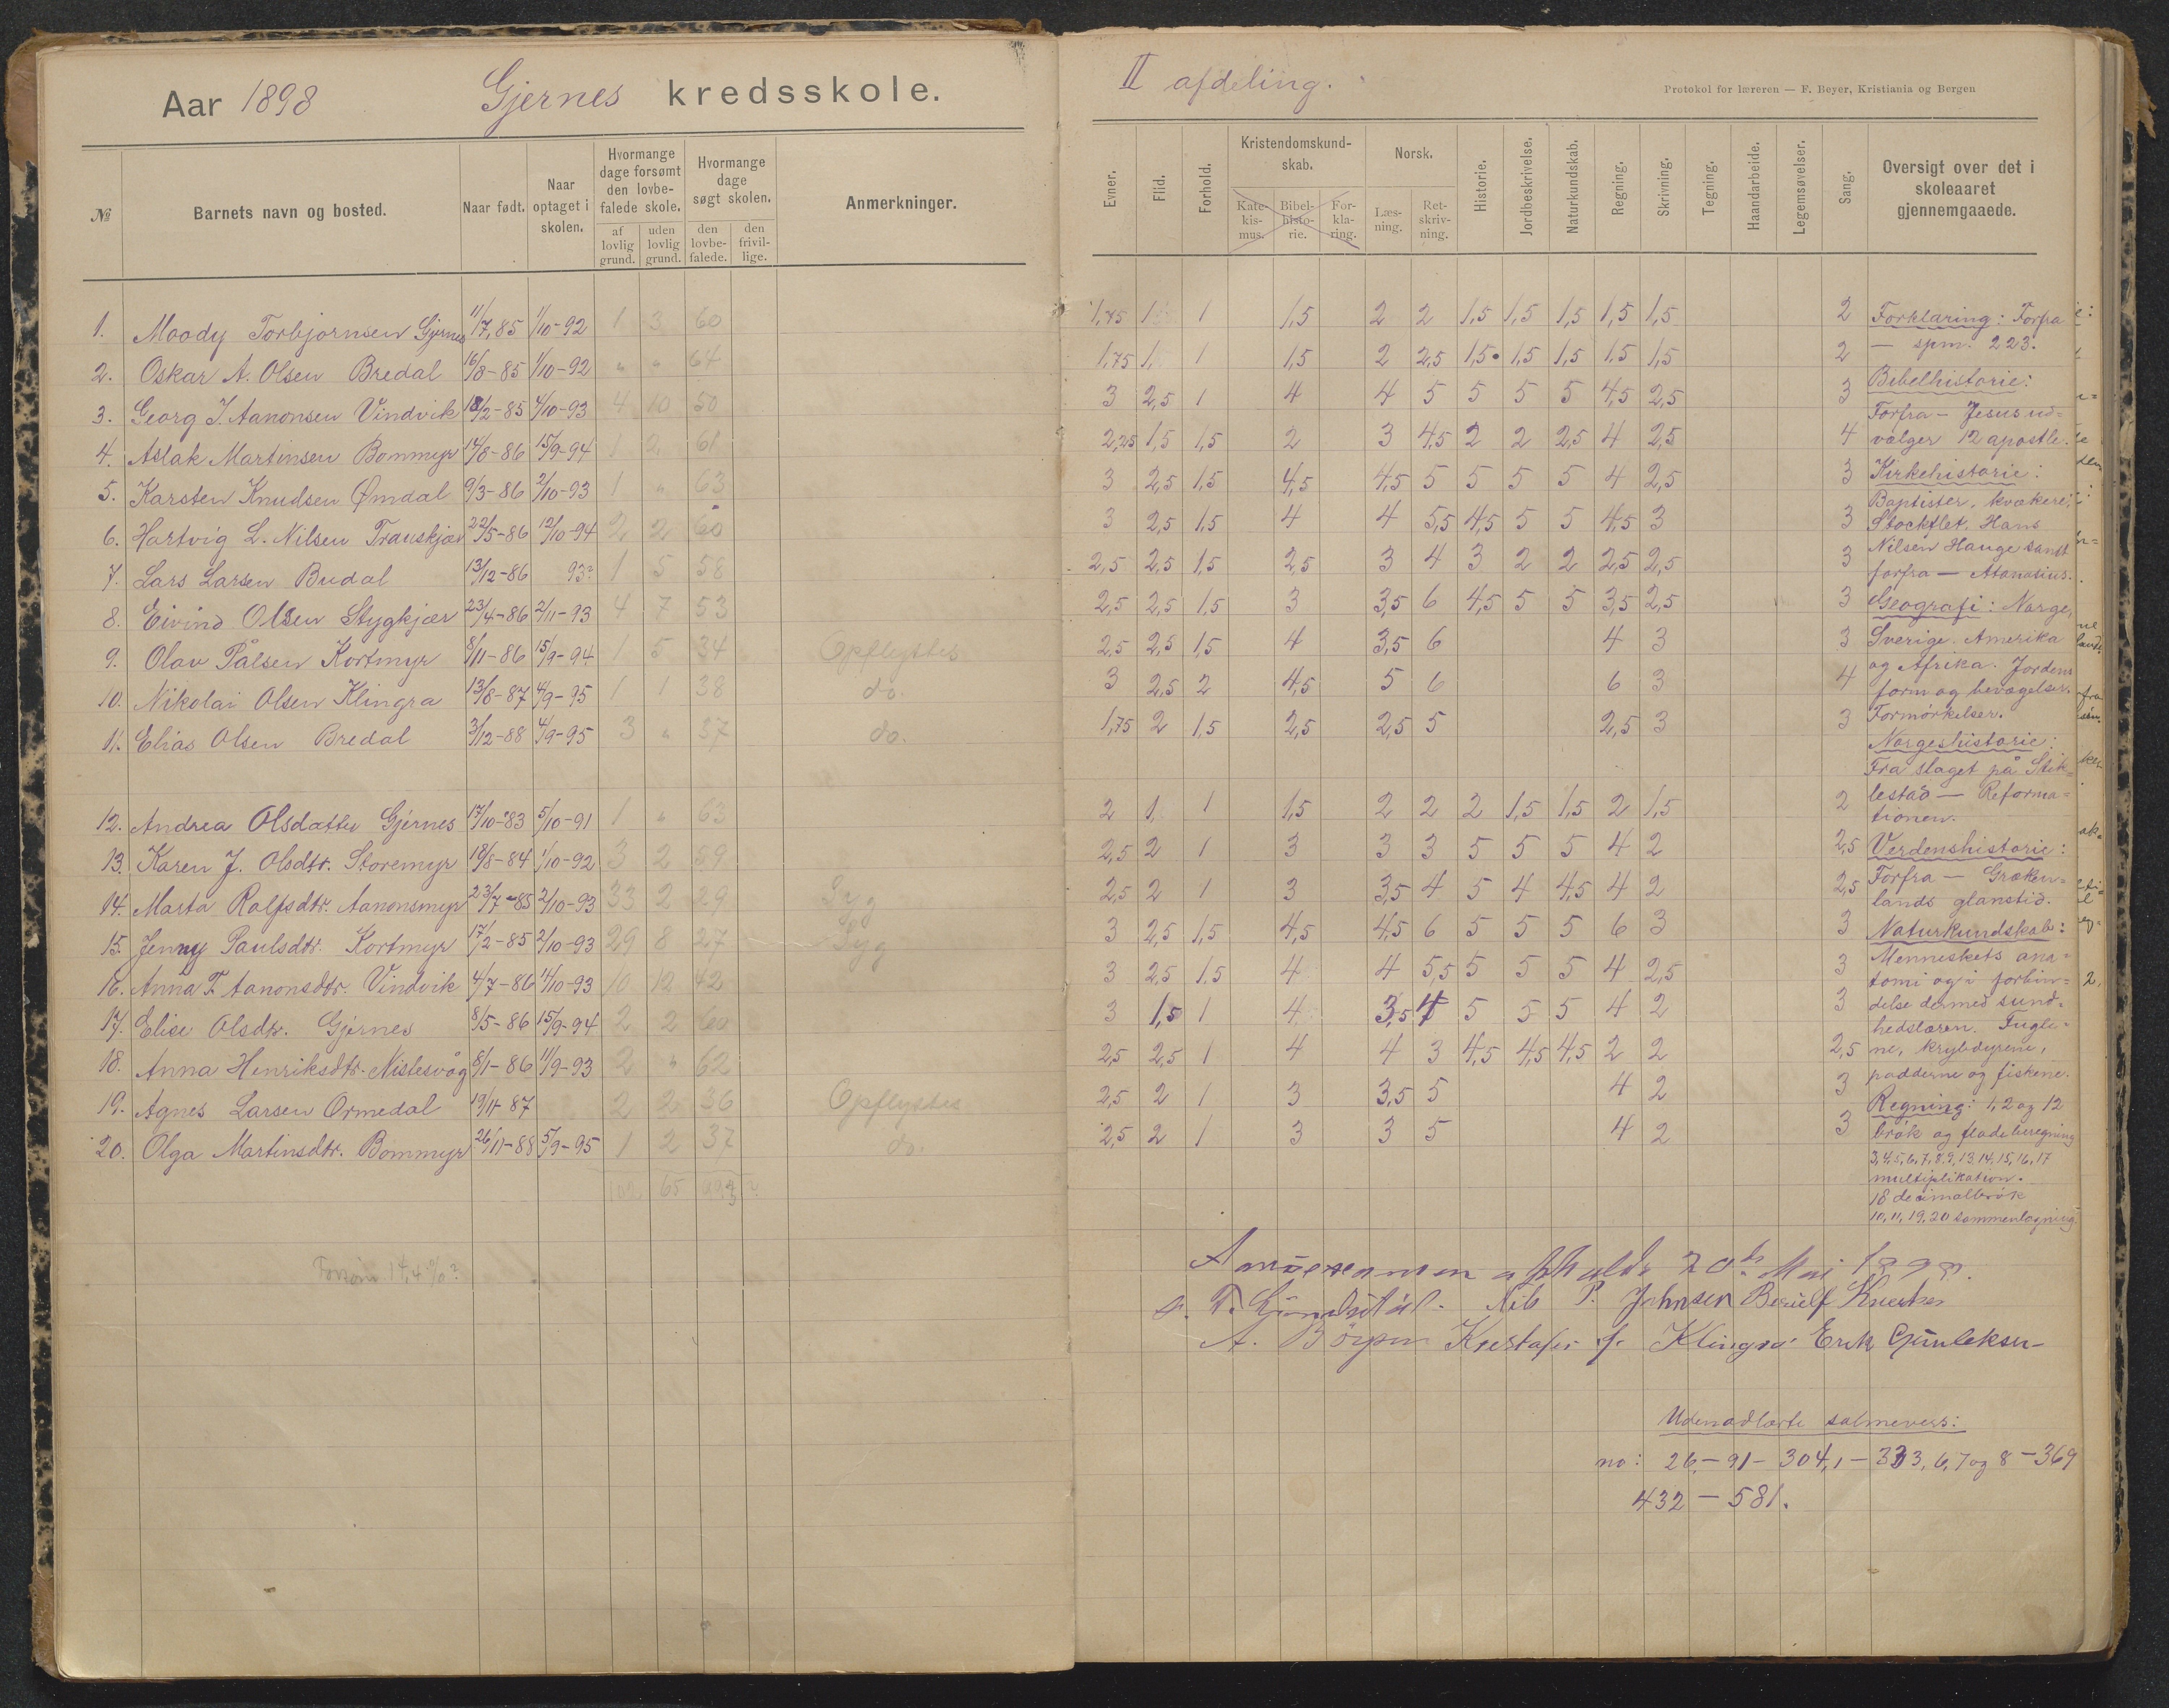 Aar 1898 Gjernes kredsskole.
II afdeling.
Protokol for læreren — F. Beyer, Kristiania og Bergen
№ Barnets navn og bosted. Naar født. Naar optaget i skolen. Hvormange dage forsømt den lovbefalede skole. af lovlig grund. uden lovlig grund. Hvormange dage søgt skolen. den lovbefalede. den frivillige. Anmerkninger.
Evner. Flid. Forhold. Kristendomskundskab. Katekismus. Bibelhistorie. Forklaring. Norsk. Læsning. Retskrivning. Historie. Jordbeskrivelse. Naturkundskab. Regning. Skrivning. Tegning. Haandarbeide. Legemsøvelser. Sang. Oversigt over det i skoleaaret gjennemgaaede.
1. Moody Torbjørnsen Gjernes 11/7,85 1/10-92 1 3 60
2. Oskar A. Olsen Bredal 16/8-85 1/10-92 " " 64
3. Georg J. Aanonsen Vindvik 18/2-85 4/10-93 4 10 50
4. Aslak Martinsen Bommyr 14/8-86 15/9-94 1 2 61
5. Karsten Knudsen Ømdal 9/3-86 2/10-93 1 " 63
6. Hartvig L. Nilsen Trauskjær 22/5-86 12/10-94 2 2 60
7. Lars Larsen Budal 13/12-86 93? 1 5 58
8. Eivind Olsen Stygkjær 23/4-86 2/11-93 4 7 53
9. Olav Pålsen Kortmyr 8/11-86 15/9-94 1 5 34 Opflyttes
10. Nikolai Olsen Klingra 13/8-87 4/9-95 1 1 38 do.
11. Elias Olsen Bredal 3/12-88 4/9-95 3 " 37 do.
12. Andrea Olsdatter Gjernes 17/10-83 5/10-91 1 " 63
13. Karen J. Olsdtr. Storemyr 18/8-84 1/10-92 3 2 59
14. Marta Rolfsdtr. Aanonsmyr 23/7-85 2/10-93 33 2 29 Syg
15. Jenny Paulsdtr. Kortmyr 17/2-85 2/10-93 29 8 27 Syg
16. Anna T. Aanonsdtr. Vindvik 4/7-86 4/10-93 10 12 42
17. Elise Olsdtr. Gjernes 8/5-86 15/9-94 2 2 60
18. Anna Henriksdtr. Nistesvåg 8/1-86 11/9-93 2 " 62
19. Agnes Larsen Ormedal 19/11 87 2 2 36 Opflyttes
20. Olga Martinsdtr. Bommyr 26/11-88 5/9-95 1 2 37 do.
102 65
1,75 1 1 1,5 2 2 1,5 1,5 1,5 1,5 1,5 2
1,75 1, 1 1,5 2 2,5 1,5 1,5 1,5 1,5 1,5 2
3 2,5 1 4 4 5 5 5 5 4,5 2,5 3
2,25 1,5 1,5 2 3 4,5 2 2 2,5 4 2,5 4
3 2,5 1,5 4,5 4,5 5 5 5 5 4 2,5 3
3 2,5 1,5 4 4 5,5 4,5 5 5 4,5 3 3
2,5 2,5 1,5 2,5 3 4 3 2 2 2,5 2,5 3
2,5 2,5 1,5 3 3,5 6 4,5 5 5 3,5 2,5 3
2,5 2,5 1,5 4 3,5 6 4 3 3
3 2,5 2 4,5 5 6 6 3 4
1,75 2 1,5 2,5 2,5 5 2,5 3 3
2 1 1 1,5 2 2 2 1,5 1,5 2 1,5 2
2,5 2 1 3 3 3 5 5 5 4 2 2,5
2,5 2 1 3 3,5 4 5 4 4,5 4 2 2,5
3 2,5 1,5 4,5 4,5 6 5 5 5 6 3 3
3 2,5 1,5 4 4 5,5 5 5 5 4 2,5 3
3 1,5 1 4 3,5 4 5 5 5 4 2 3
2,5 2,5 1 4 4 3 4,5 4,5 4,5 2 2 2,5
2,5 2 1 3 3,5 5 4 2 3
2,5 2 1 3 3 5 4 2 3
Forklaring: Forfra
— spm. 223.
Bibelhistorie:
Forfra — Jesus ud=
vælger 12 apostle.
Kirkehistorie:
Baptister, kvækere,
Stockflet. Hans
Nilsen Hauge samt
forfra — Atanasius.
Geografi: Norge,
Sverige. Amerika
og Afrika. Jordens
form og bevægelser.
Formørkelser.
Norgeshistorie:
Fra slaget på Stik=
lestad — Reforma=
tionen.
Verdenshistorie:
Forfra — Græken=
lands glanstid.
Naturkundskab:
Menneskets ana=
tomi og i forbin=
delse dermed sund=
hedslæren. Fugle=
ne, krybdyrene,
padderne og fiskene.
Regning: 1,2 og 12
brøk og fladeberegning
3,4,5,6,7,8,9,13,14,15,16,17
multiplikation.
18 decimalbrøk
10,11,19,20 sammenlægning.
Forsøm 14,4 %?
Aarsexamen afholdt 20de Mai 1898.
P. Johnsen
A. Kristofer J. Klingra Erik Gunleksen
Udenadlærte salmevers:
no: 26 — 91 — 304,1 — 333, 6, 7 og 8 — 369
432 — 581.